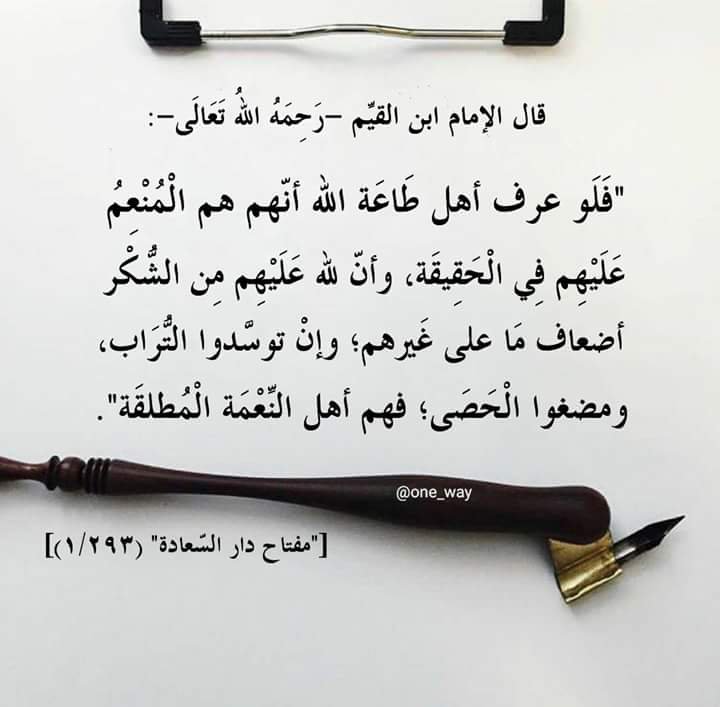 قال الإمام ابن القيّم -رَحِمَهُ اللهُ تَعَالَى-:
"فَلَو عرف أهل طَاعَة الله أنّهم هم الْمُنْعِمُ
عَلَيْهِم فِي الْحَقِيقَة، وأنّ لله عَلَيْهِم مِن الشُّكْر
أضعاف مَا على غَيرهم؛ وإنْ توسَّدوا التُّرَاب،
ومضغوا الْحَصَى؛ فهم أهل النِّعْمَة الْمُطلقَة".
@one_way
["مفتاح دار السّعادة" (١/٢٩٣)]